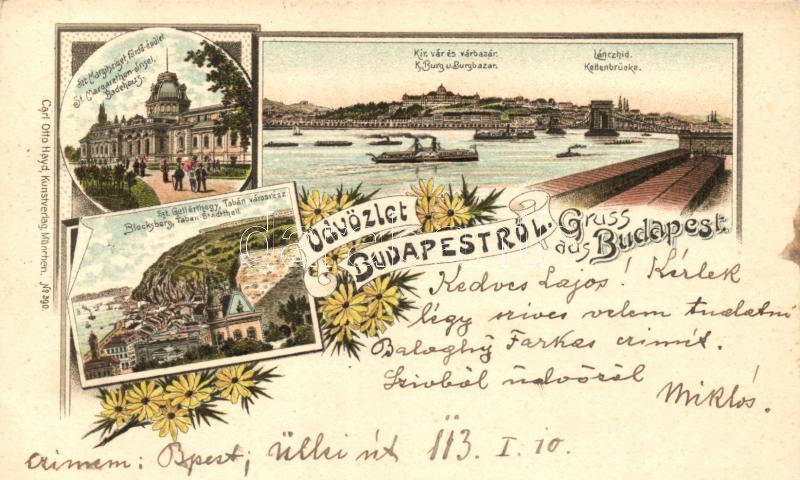 Szt. Margitsziget fürdő épület
St. Margarethen-Insel,
Badehaus.
Kir. vár és várbazár.
K. Burg u. Burgbazar.
Lánczhid.
Kettenbrücke.
Carl Otto Hayd, Kunstverlag, München. No 390.
Szt. Gellérthegy, Tabán városrész
Blocksberg, Taban Stadttheil
Üdvözlet
BUDAPESTRŐL.
Gruss
aus Budapest.
Kedves Lajos! Kérlek
légy szives velem tudatni
Baloghy Farkas czimit.
Szivből üdvözöl
Miklós.
czimem: Bpest, Üllői út 113. I. 10.